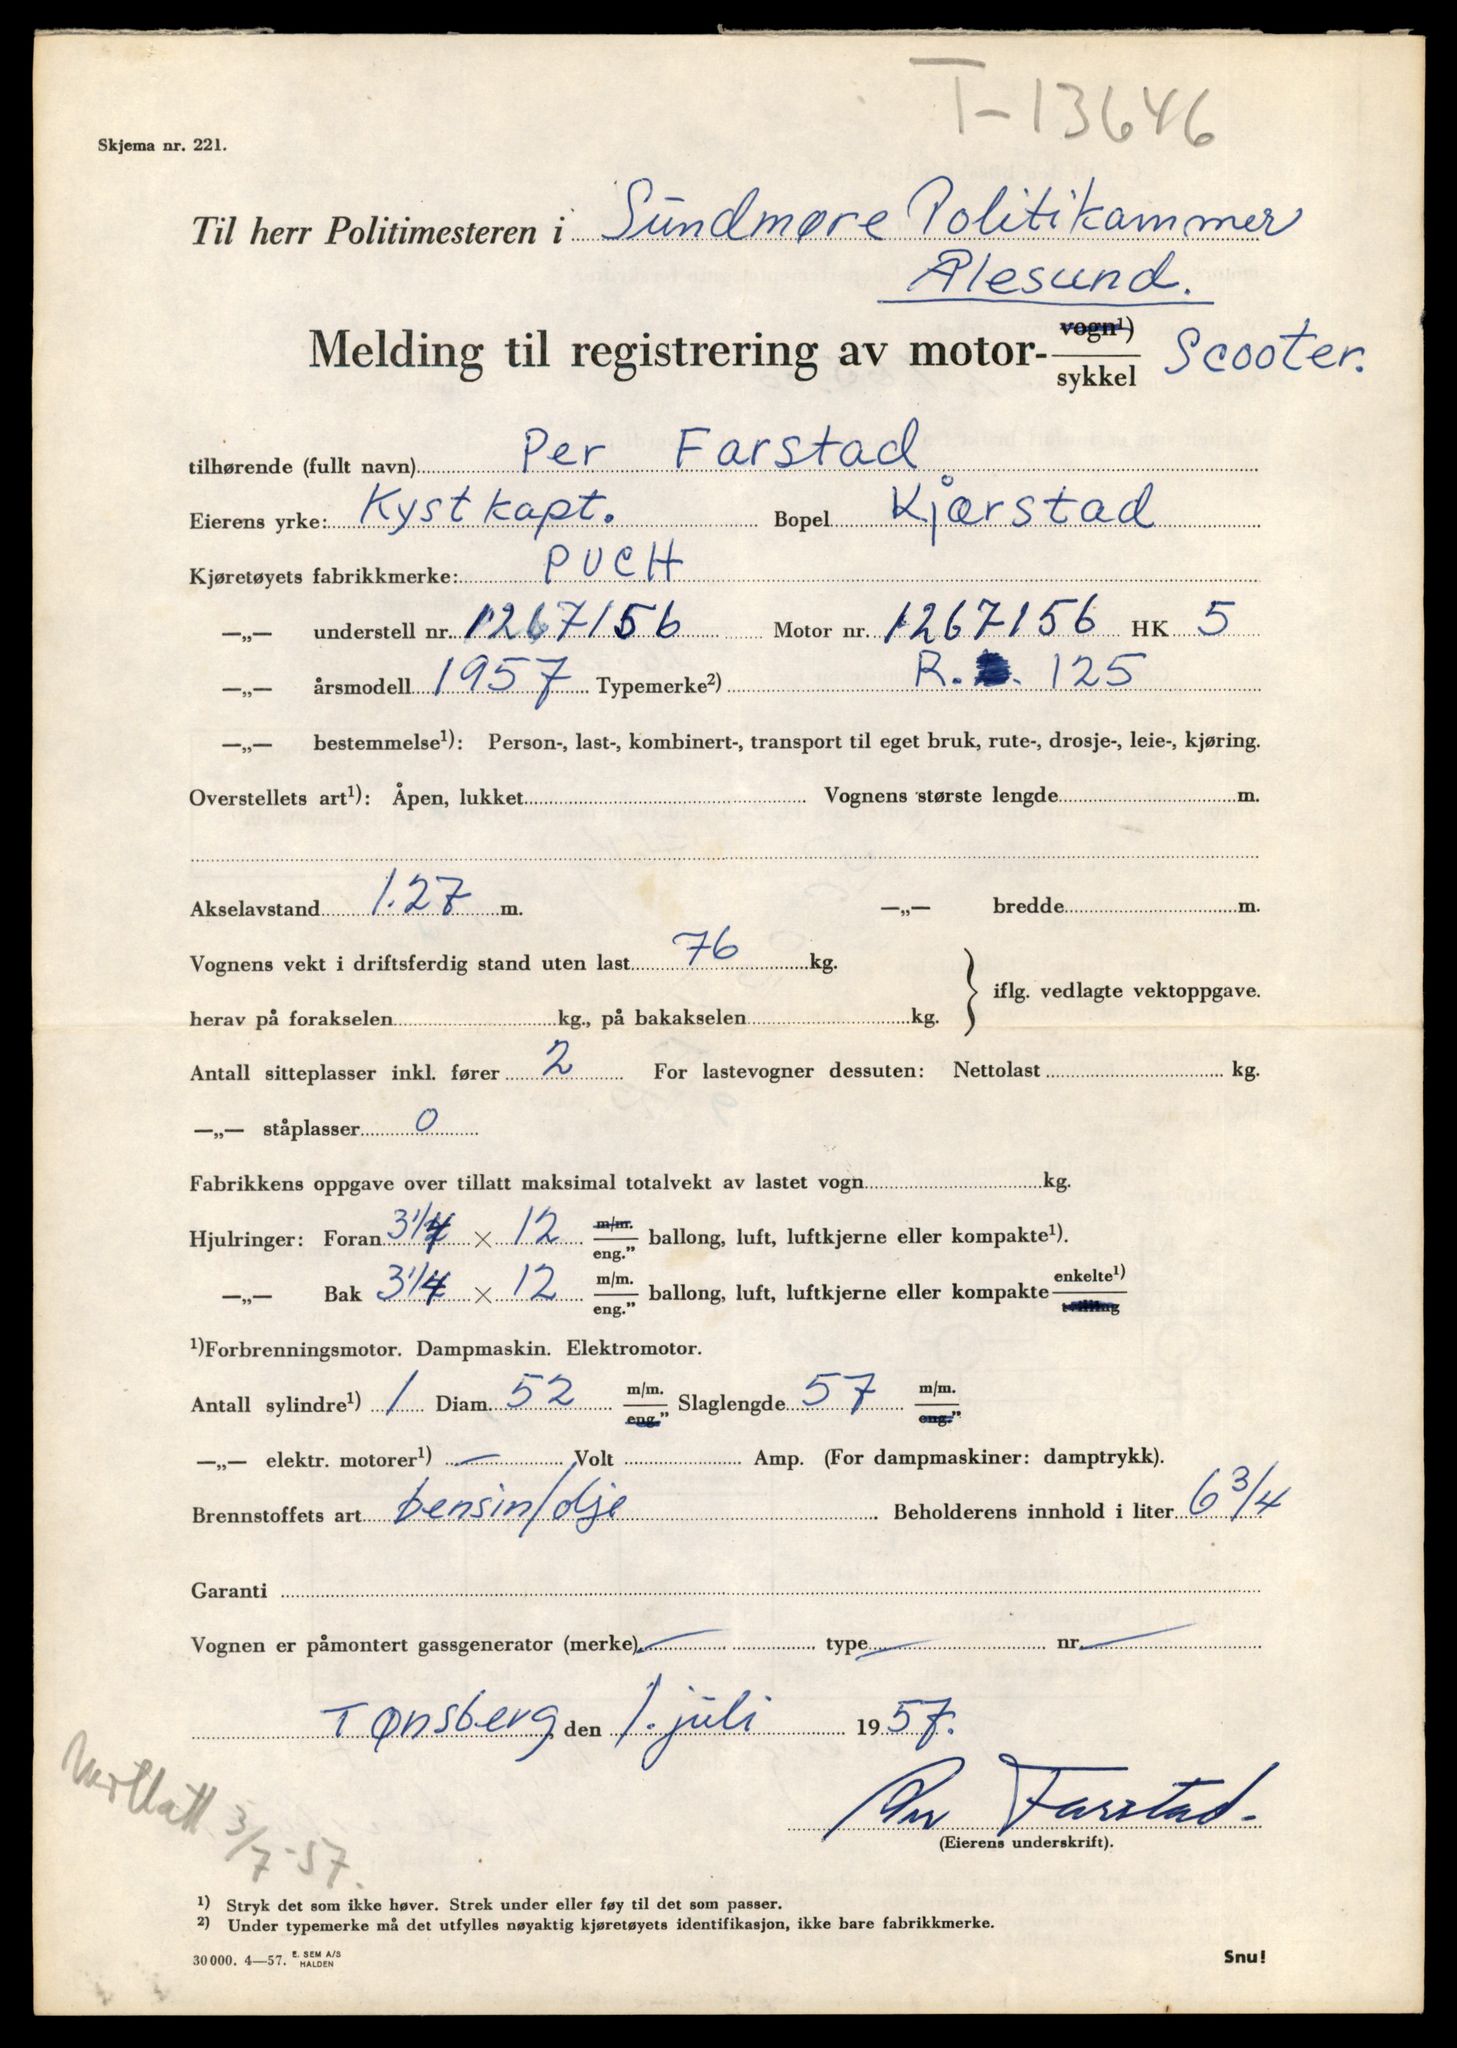 T-13646
Skjema nr. 221.
Til herr Politimesteren i Sundmøre Politikammer
Ålesund.
Melding til registrering av motor- vogn¹) / sykkel Scooter.
tilhørende (fullt navn) Per Farstad
Eierens yrke: Kystkapt. Bopel Kjærstad
Kjøretøyets fabrikkmerke: PUCH
—„— understell nr. 1267156 Motor nr. 1267156 HK 5
—„— årsmodell 1957 Typemerke²) R. 125
—„— bestemmelse¹): Person-, last-, kombinert-, transport til eget bruk, rute-, drosje-, leie-, kjøring.
Overstellets art¹): Åpen, lukket Vognens største lengde m.
Akselavstand 1.27 m. —„— bredde m.
Vognens vekt i driftsferdig stand uten last 76 kg.
iflg. vedlagte vektoppgave.
herav på forakselen kg., på bakakselen kg.
Antall sitteplasser inkl. fører 2 For lastevogner dessuten: Nettolast kg.
—„— ståplasser 0
Fabrikkens oppgave over tillatt maksimal totalvekt av lastet vogn kg.
Hjulringer: Foran 3 1/4 × 12 m/m. / eng." ballong, luft, luftkjerne eller kompakte¹).
—„— Bak 3 1/4 × 12 m/m. / eng." ballong, luft, luftkjerne eller kompakte enkelte¹) / tvilling
¹)Forbrenningsmotor. Dampmaskin. Elektromotor.
Antall sylindre¹) 1 Diam. 52 m/m. / eng." Slaglengde 57 m/m. / eng."
—„— elektr. motorer¹) — Volt Amp. (For dampmaskiner: damptrykk).
Brennstoffets art bensin/olje Beholderens innhold i liter 6 3/4
Garanti
Vognen er påmontert gassgenerator (merke) — type — nr. —
Tønsberg, den 1. juli 1957.
Per Farstad
(Eierens underskrift).
3/7-57.
¹) Stryk det som ikke høver. Strek under eller føy til det som passer.
²) Under typemerke må det utfylles nøyaktig kjøretøyets identifikasjon, ikke bare fabrikkmerke.
30 000. 4—57. E. SEM A/S HALDEN
Snu!